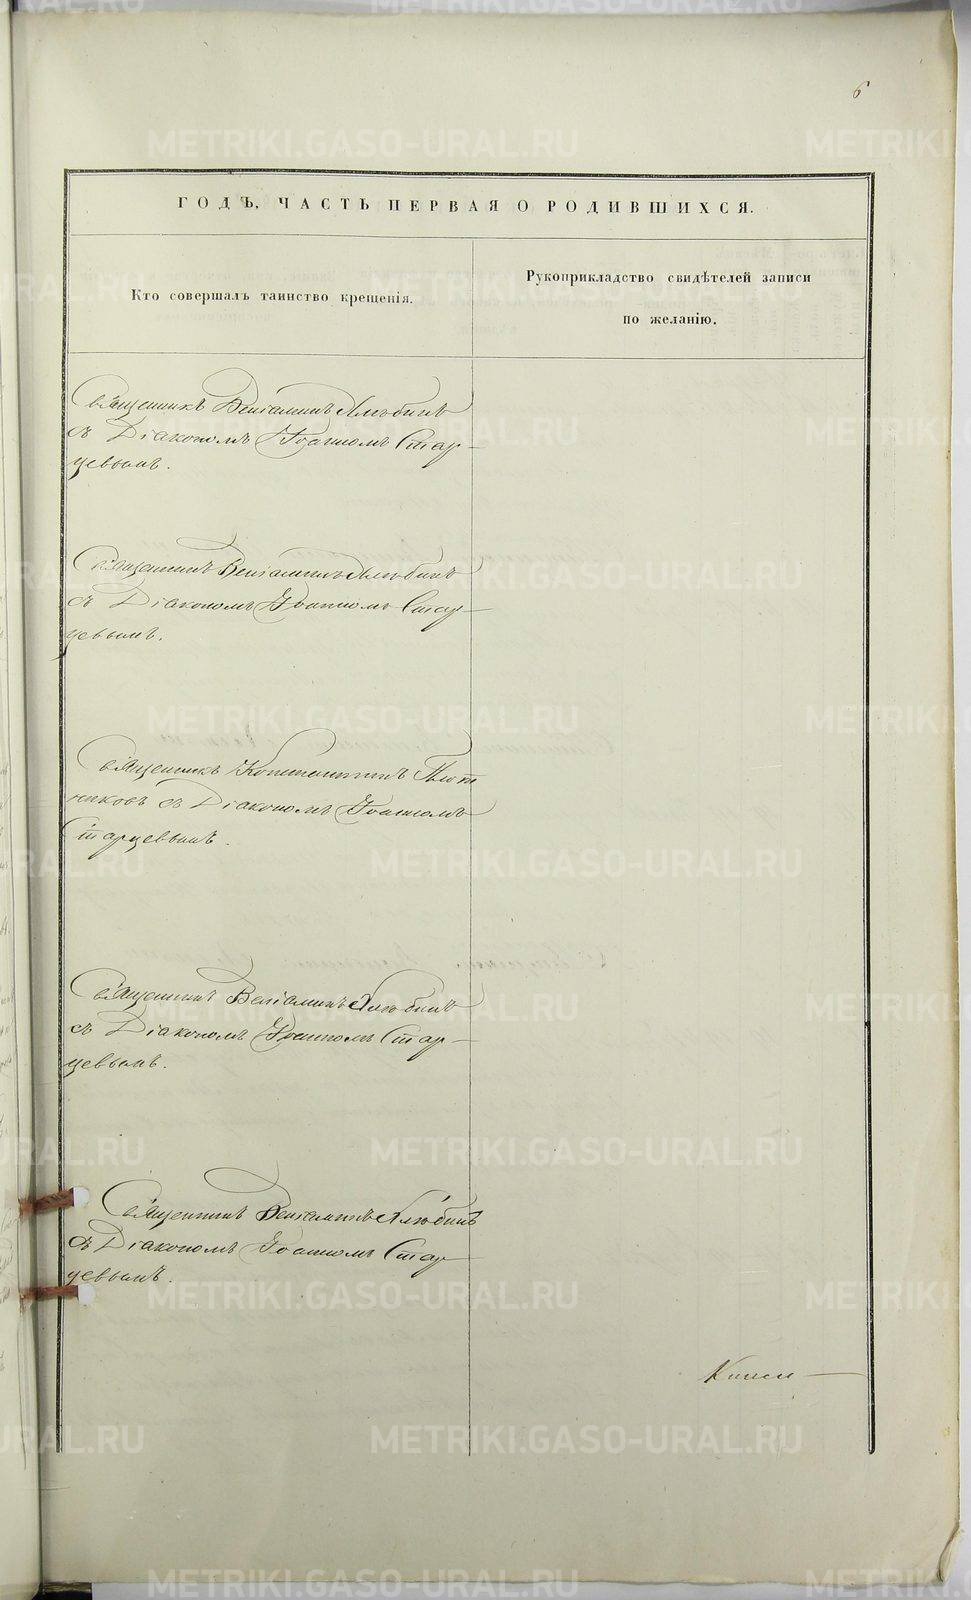 6
ГОДЪ, ЧАСТЬ ПЕРВАЯ О РОДИВШИХСЯ.
Кто совершалъ таинство крещенія.
Рукоприкладство свидѣтелей записи
по желанію.
Священникъ Веніаминъ Алюбинъ
съ Діакономъ Іоанномъ Стар-
цевымъ.
Священникъ Веніаминъ Алюбинъ
съ Діакономъ Іоанномъ Стар-
цевымъ.
Священникъ Константинъ Плот
никовъ съ Діакономъ Іоанномъ
Старцевымъ.
Священникъ Веніаминъ Алюбинъ
съ Діакономъ Іоанномъ Стар-
цевымъ.
Священникъ Веніаминъ Алюбинъ
съ Діакономъ Іоанномъ Стар
цевымъ.
METRIKI.GASO-URAL.RU